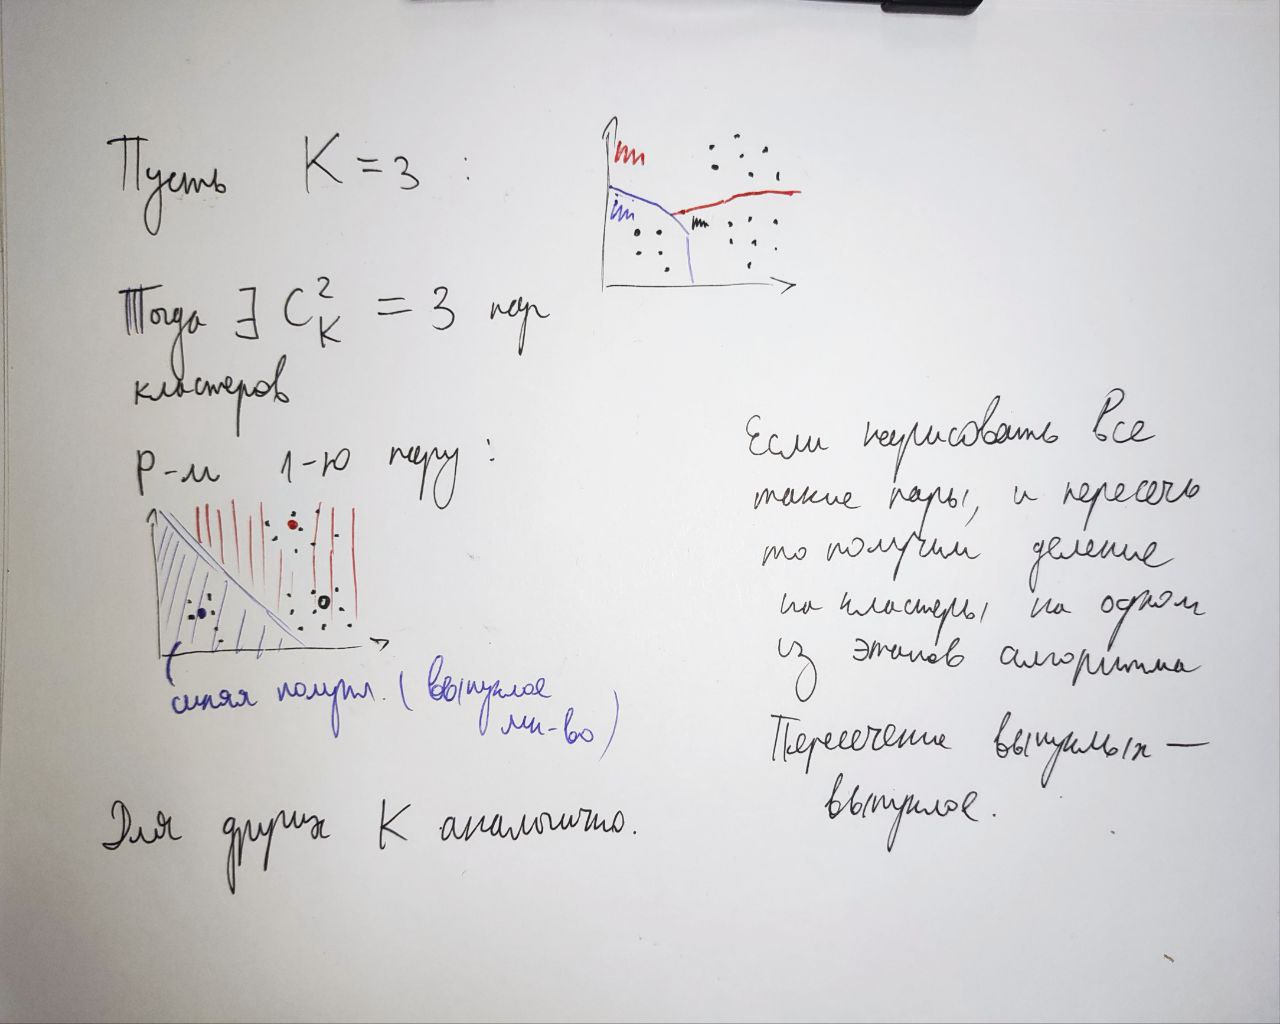 Пусть K = 3 :
Тогда ∃ C²_K = 3 пар
кластеров
Р-м 1-ю пару :
синяя полупл. (выпуклое
мн-во)
Для других K аналогично.
Если нарисовать все
такие пары, и пересечь
то получим деление
на кластеры на одном
из этапов алгоритма
Пересечение выпуклых —
выпуклое.